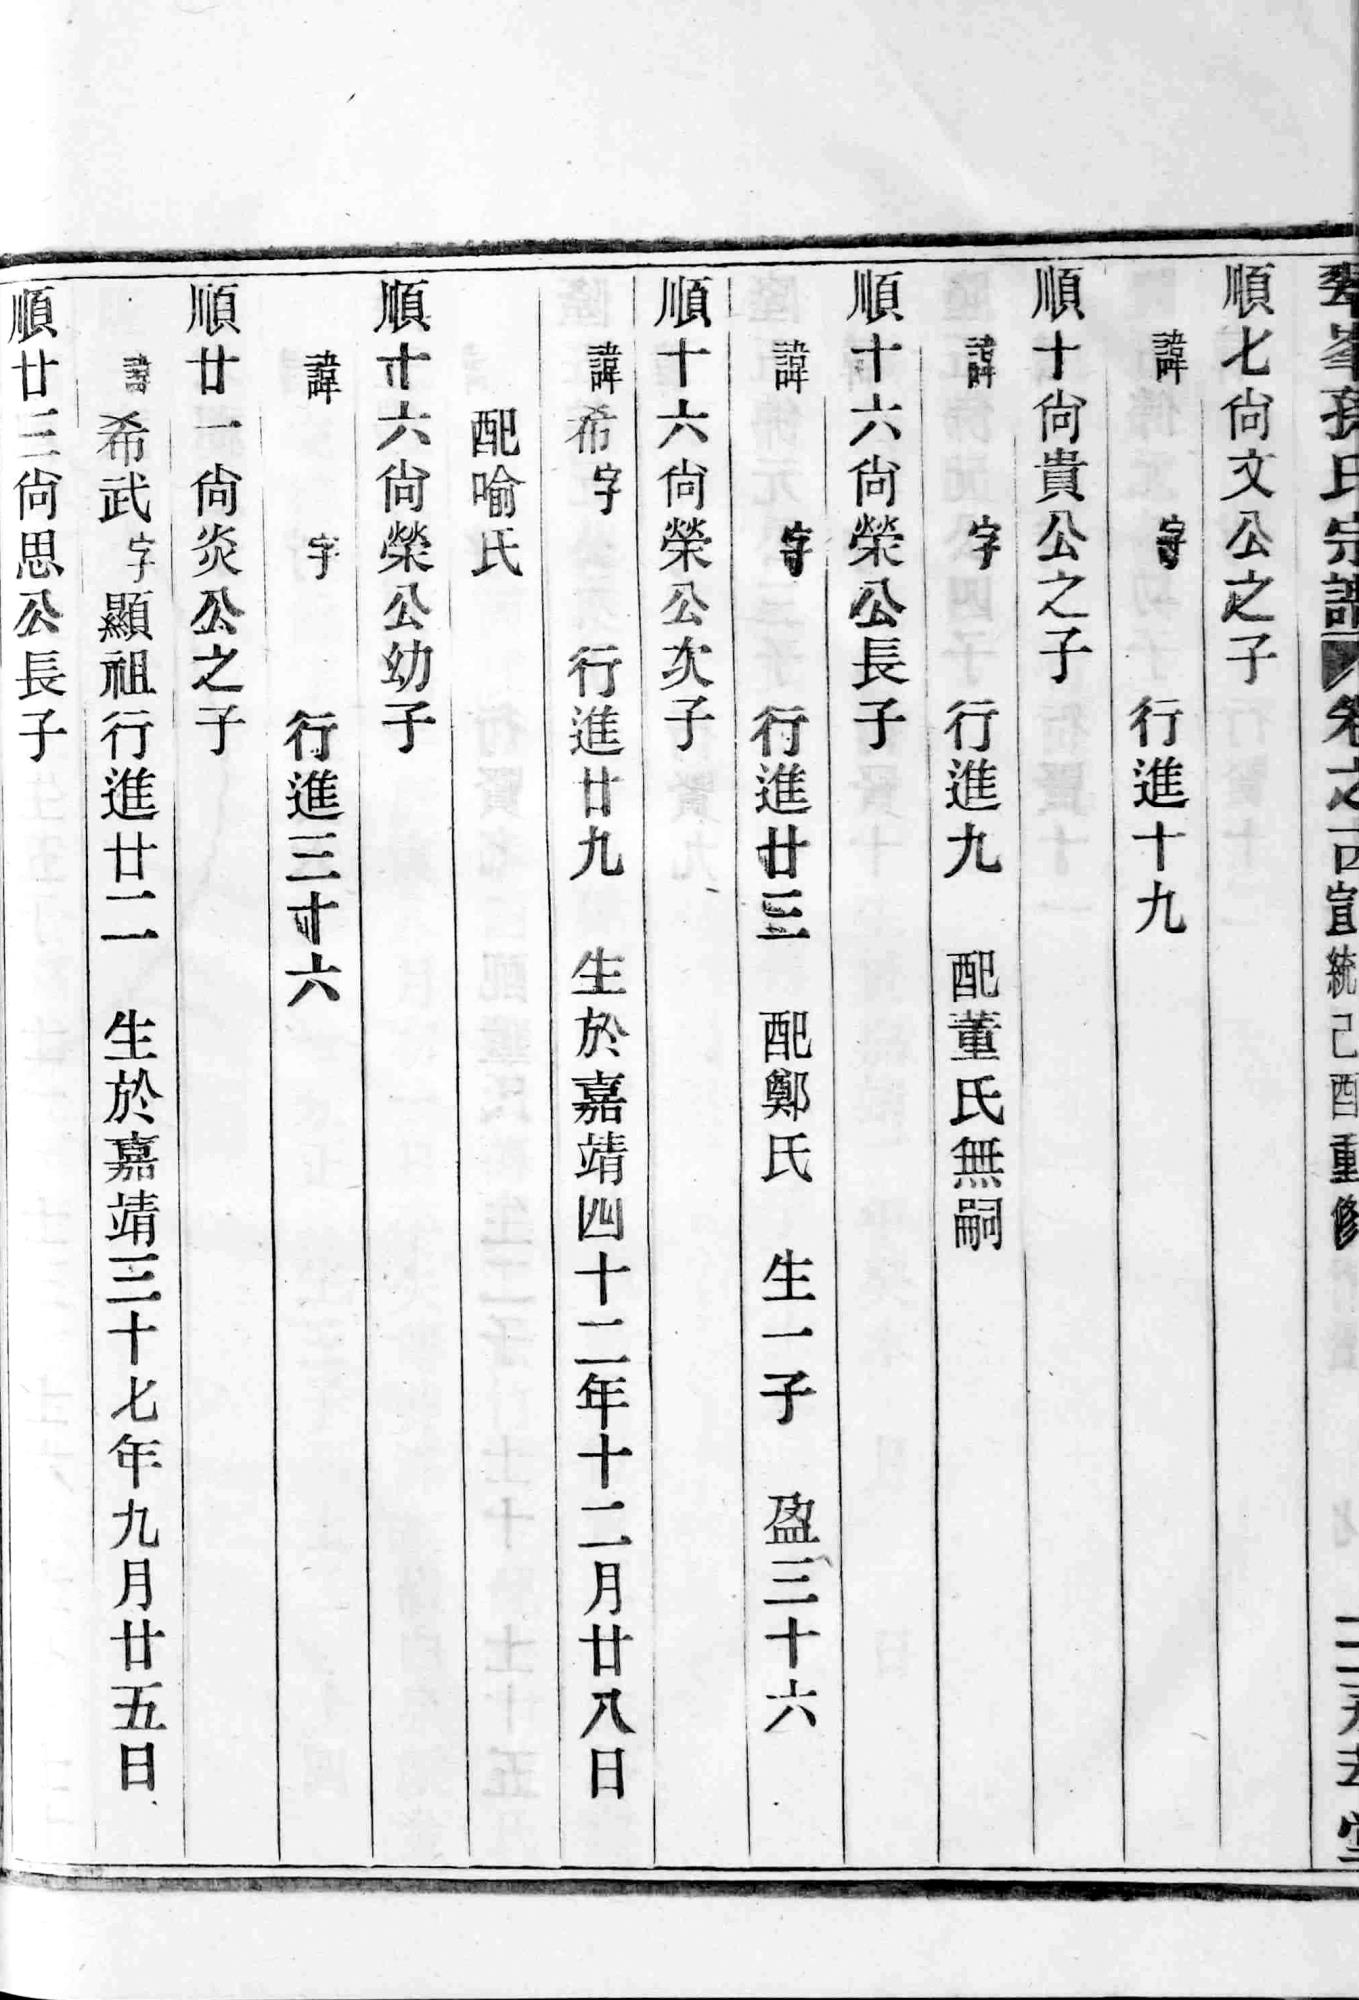 孫氏宗譜 卷之 宣統己酉重修
順七尙文公之子
諱 字 行進十九
順十尙貴公之子
諱 字 行進九 配董氏無嗣
順十六尙榮公長子
諱 字 行進廿三 配鄭氏 生一子 盈三十六
順十六尙榮公次子
諱希 字 行進廿九 生於嘉靖四十二年十二月廿八日
配喻氏
順十六尙榮公幼子
諱 字 行進三十六
順廿一尙炎公之子
諱希武 字顯祖行進廿二 生於嘉靖三十七年九月廿五日
順廿三尙思公長子